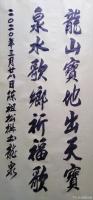 龍山寶地出天寶
泉水歌鄉祈福歌
二〇二〇年三月廿八日陳祖松撰於龍泉